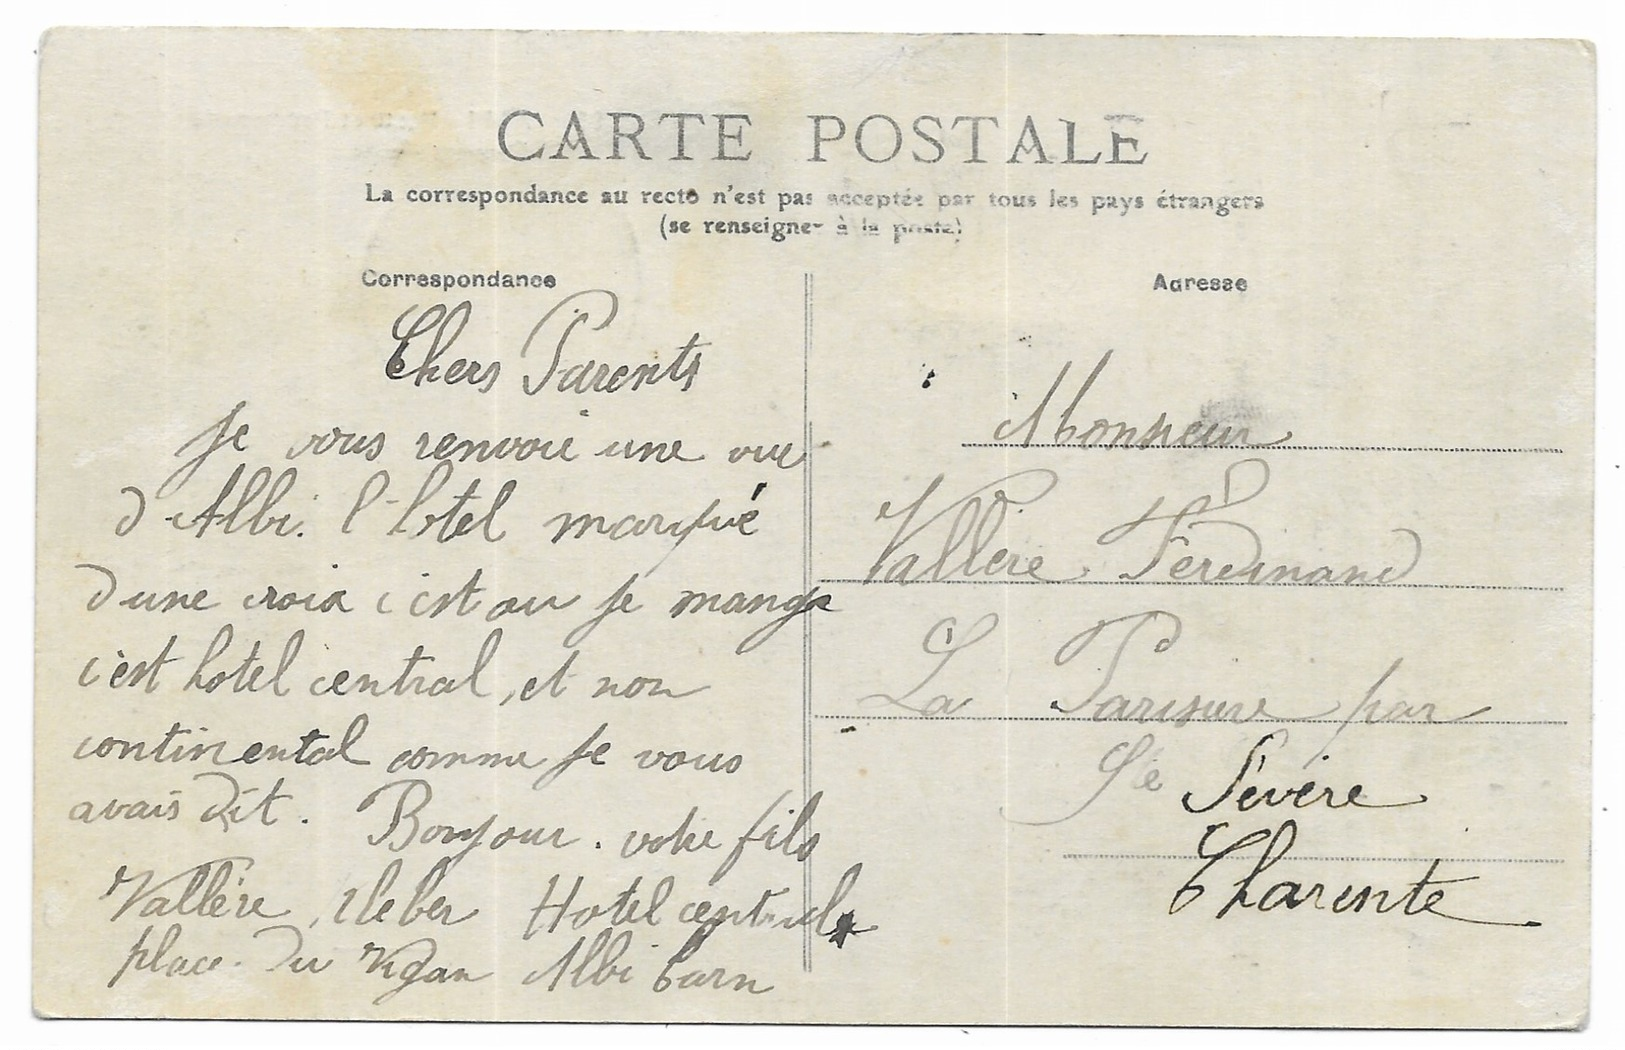 CARTE POSTALE
La correspondance au recto n'est pas acceptée par tous les pays étrangers
(se renseigner à la poste)
Correspondance
Chers Parents
Je vous renvoie une vue
d'Albi. l'hotel marqué
d'une croix c'est ou je mange
c'est hotel central, et non
continental comme je vous
avais dit. Bonjour. votre fils
Vallère, Kleber Hotel central
place du Vigan Albi Tarn
Adresse
Monsieur
Vallère Ferdinand
La par
Ste Sévère
Charente